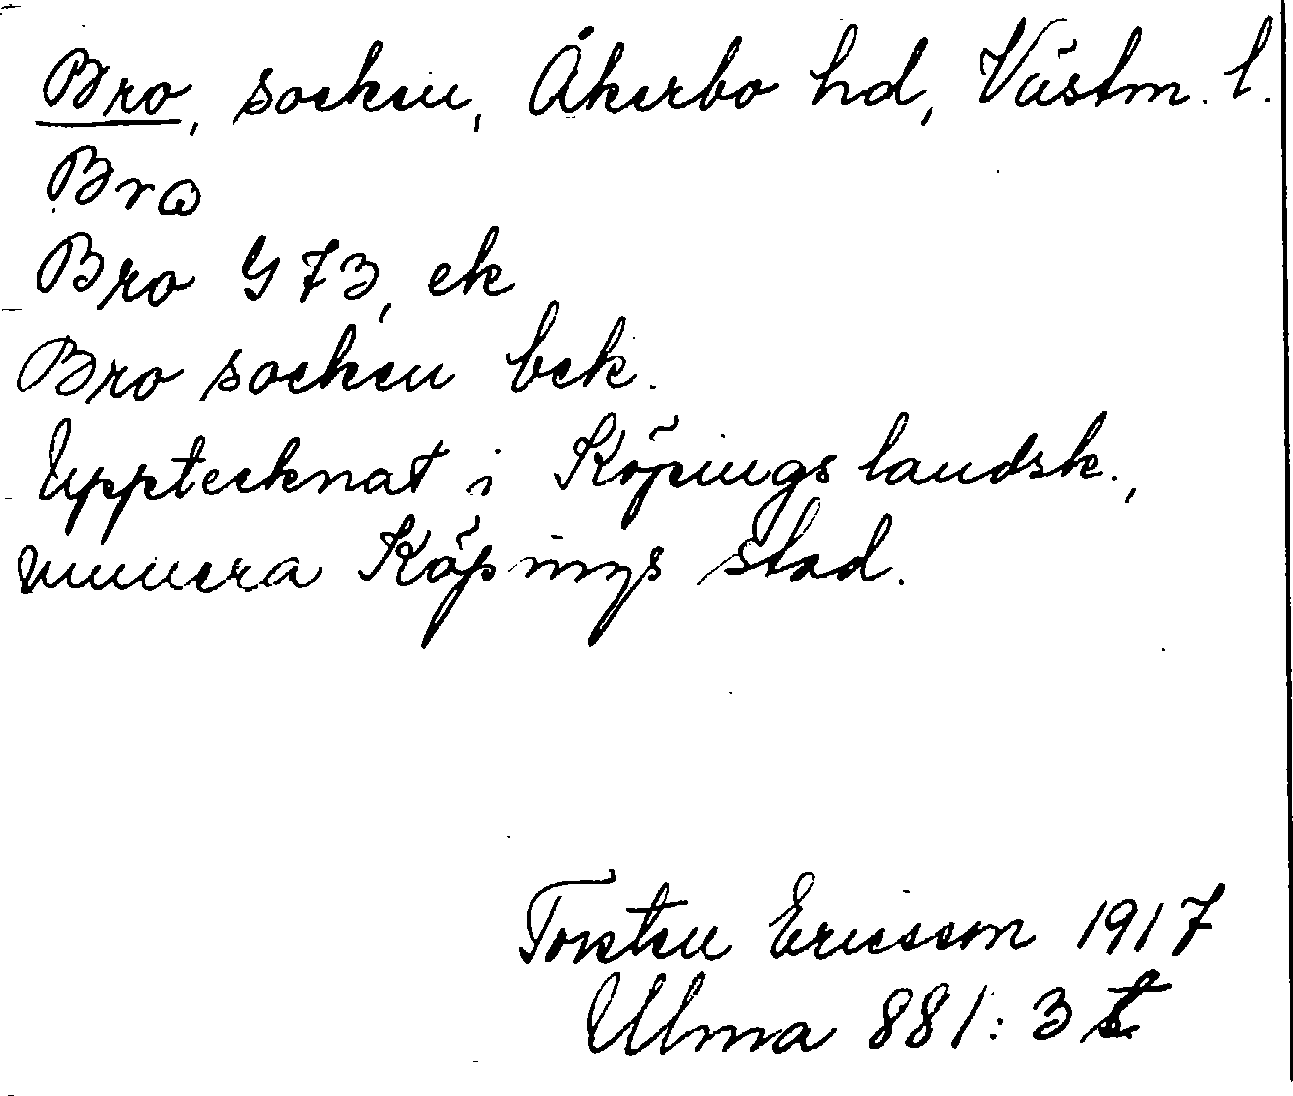 Bro, socken, Åkerbo hd, Västm. l.
Bro
Bro G 73, ek
Bro socken bek.
Upptecknat i Köpings landsk.,
numera Köpings stad.
Torsten Ericsson 1917
Ulma 881: 3